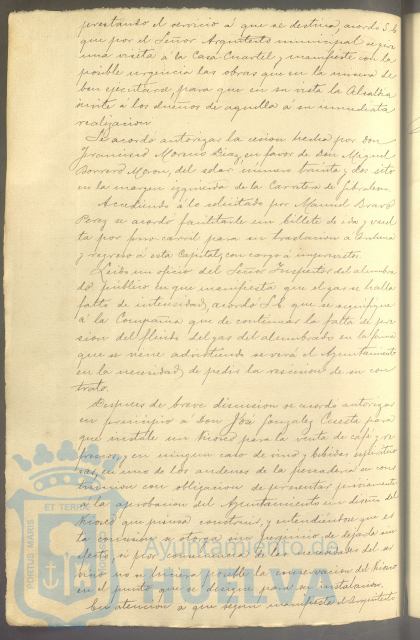 prestando el servicio a que se destina, acordo S. E.
que por el Señor Arquitecto municipal se gire
una visita a la Casa Cuartel, y manifieste con la
posible urgencia las obras que en la misma de-
ban ejecutarse para que en su vista la Alcaldia
invite a los dueños de aquella a su inmediata
realizacion
Se acordó autorizar la cesion hecha por Don
Francisco Moreno Diaz, en favor de Don Miguel
Borrero Moron, del solar numero treinta y dos sito
en la margen izquierda de la Carretera de Gibraleon.
Accediendo á lo solicitado por Manuel Bravo
Perez se acordó facilitarle un billete de ida y vuel-
ta por ferro-carril para su traslacion a
y regreso á esta Capital, con cargo a imprevistos.
Leido un oficio del Señor Inspector del alumbra-
do público en que manifiesta que el gas se halla
falto de intensidad, acordó S. E. que se signifique
á la Compañia que de continuar la falta de pre-
sion del fluido del gas del alumbrado en la forma
que se viene advirtiendo se verá el Ayuntamiento
en la necesidad de pedir la rescision de su con-
trato.
Despues de breve discusion se acordó autorizar
en principio a Don José Gonzalez Cuesta para
que instale un Kiosco para la venta de café y re-
frescos, y en ningun caso de vino y bebidas espirituo-
sas, en uno de los andenes de la pescaderia en cons-
truccion con obligacion de presentar previamente
á la aprobacion del Ayuntamiento un diseño del
Kiosco que piensa construir, y entendiendose que es-
ta concesion se otorga sin perjuicio de dejarla sin
efecto, si por consecuencia de las necesidades del ser-
vicio no se hiciera posible la conservacion del Kiosco
en el punto que se designe para su instalacion.
En atencion a que segun manifiesta el Arquitecto
PORTUS MARIS
ET TERRAE
Ayuntamiento de
HUELVA